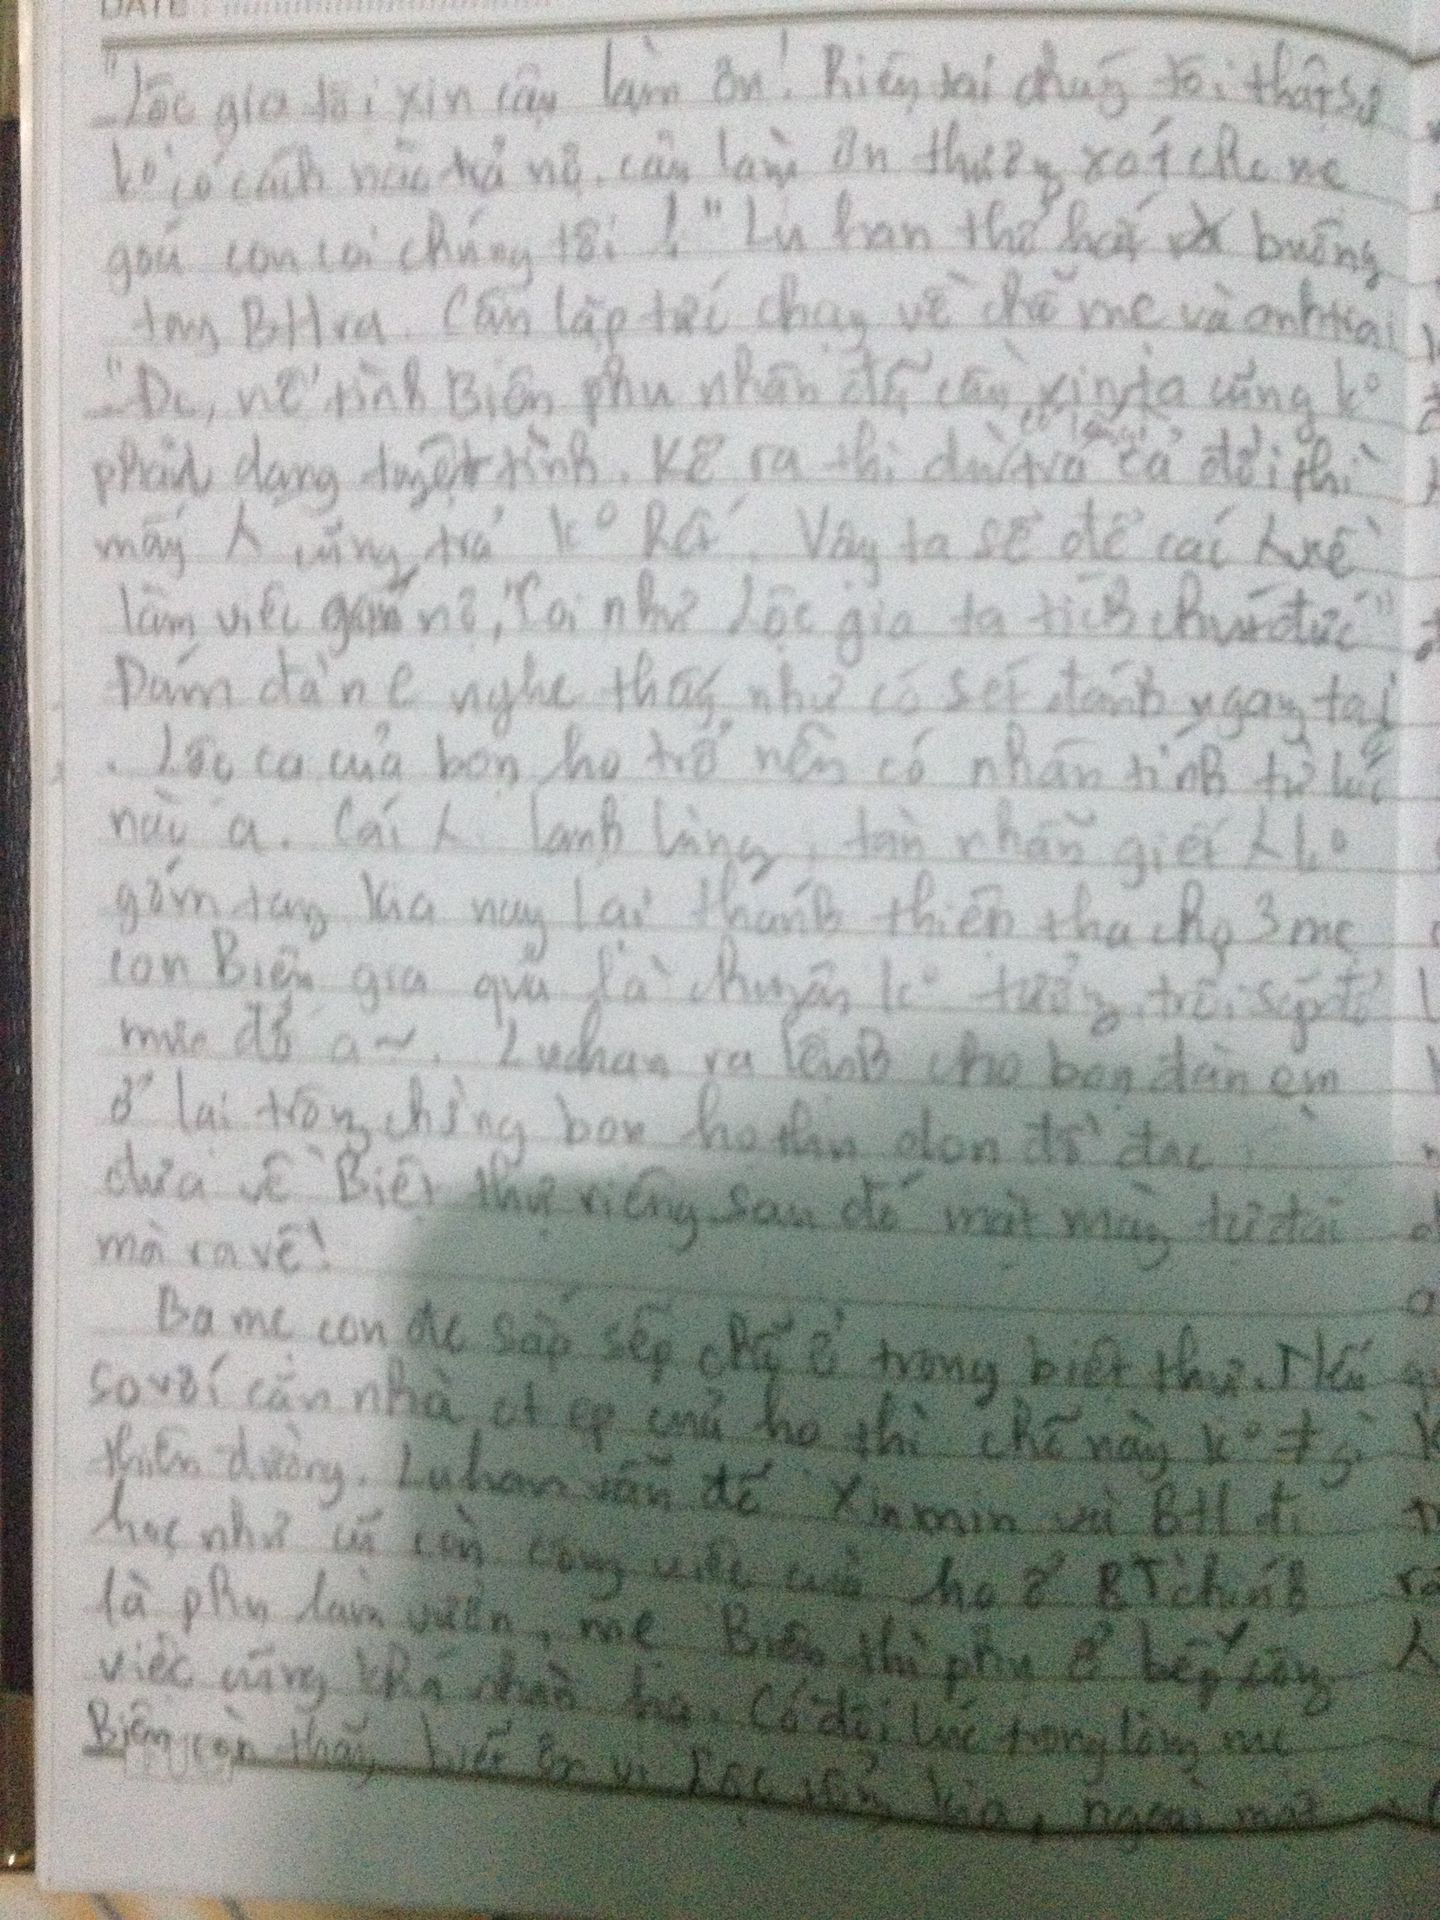 DATE
"Lộc gia tôi xin cậu làm ơn! Hiện tại chúng tôi thật sự
k° có cách nào trả nợ, cậu làm ơn thương xót cho mẹ
goá con côi chúng tôi!" Lu han thở hắt buông
tay BH ra. Cậu lập tức chạy về chỗ mẹ và anh trai
"Đc, nể tình Biện phu nhân đã cầu xin ta cũng k°
phải dạng tuyệt tình. Kể ra thì dù trả cả đời thì
mấy λ cũng trả k° hết. Vậy ta sẽ để các λ về
làm việc gán nợ, Coi như Lộc gia ta tích chút đức"
Đám đàn e nghe thấy như có sét đánh ngay tai
. Lộc ca của bọn họ trở nên có nhân tính từ lúc
nào a. Cái λ lạnh lùng, tàn nhẫn giết λ k°
gớm tay kia nay lại thánh thiện tha cho 3 mẹ
con Biện gia quả là chuyện k° tưởng, trời sắp đổ
mưa đỏ a~. Luhan ra lệnh cho bọn đàn em
ở lại trông chừng bọn họ thu dọn đồ đạc
đưa về Biệt thự riêng sau đó mặt mày tự đại
mà ra về!
Ba mẹ con đc sắp sếp chỗ ở trong biệt thự. Nếu
so với căn nhà ọt ẹp của họ thì chỗ này k° ≠ gì
thiên đường. Luhan vẫn để Xiumin và BH đi
học như cũ còn công việc của họ ở BT chính
là phụ làm vườn, mẹ Biện thì phụ ở bếp công
việc cũng khá nhàn hạ. Có đôi lúc trong lòng mẹ
Biện còn thấy biết ơn vị Lộc kia, ngoài mặt